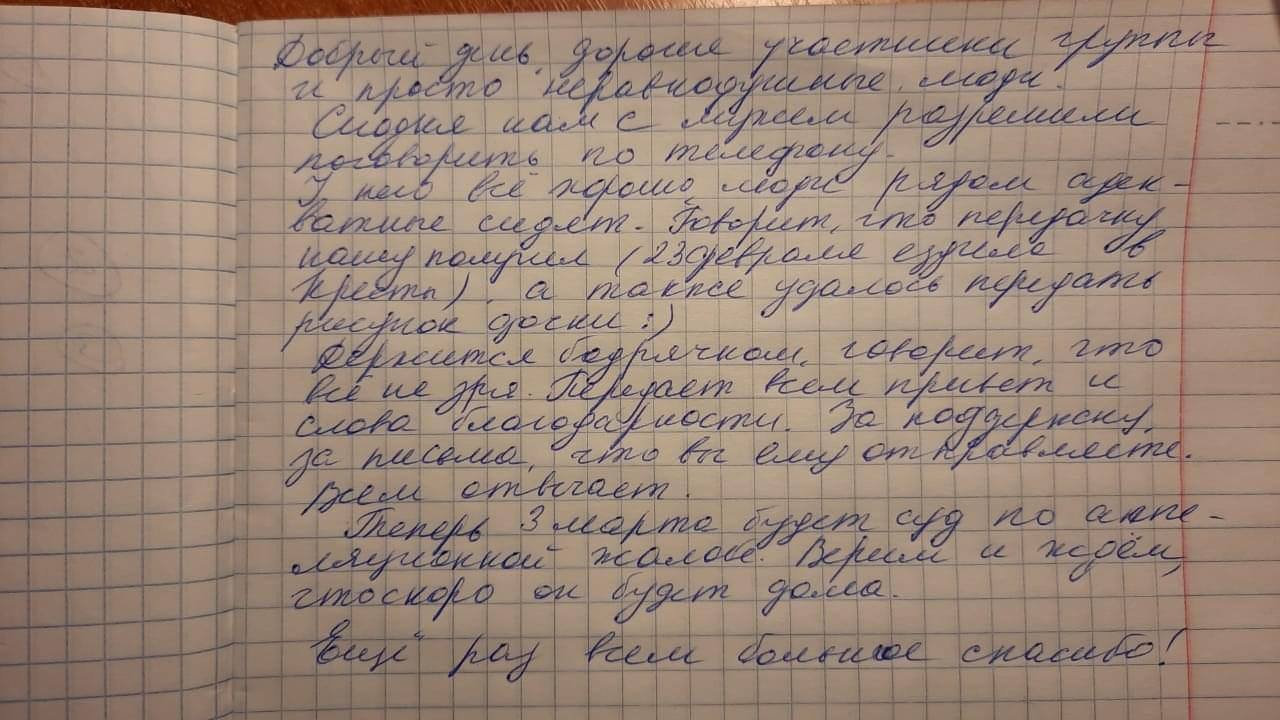 Добрый день, дорогие участники группы
и просто неравнодушные люди.
Сегодня нам с мужем разрешили
поговорить по телефону.
У него всё хорошо, люди рядом адек-
ватные сидят. Говорит, что передачку
нашу получил (23 февраля ездила в
Кресты), а также удалось передать
рисунок дочки :)
Держится бодрячком, говорит, что
всё не зря. Передает всем привет и
слова благодарности. За поддержку,
за письма, что вы ему отправляете.
Всем отвечает.
Теперь 3 марта будет суд по аппе-
ляционной жалобе. Верим и ждём,
что скоро он будет дома.
Ещё раз всем большое спасибо!